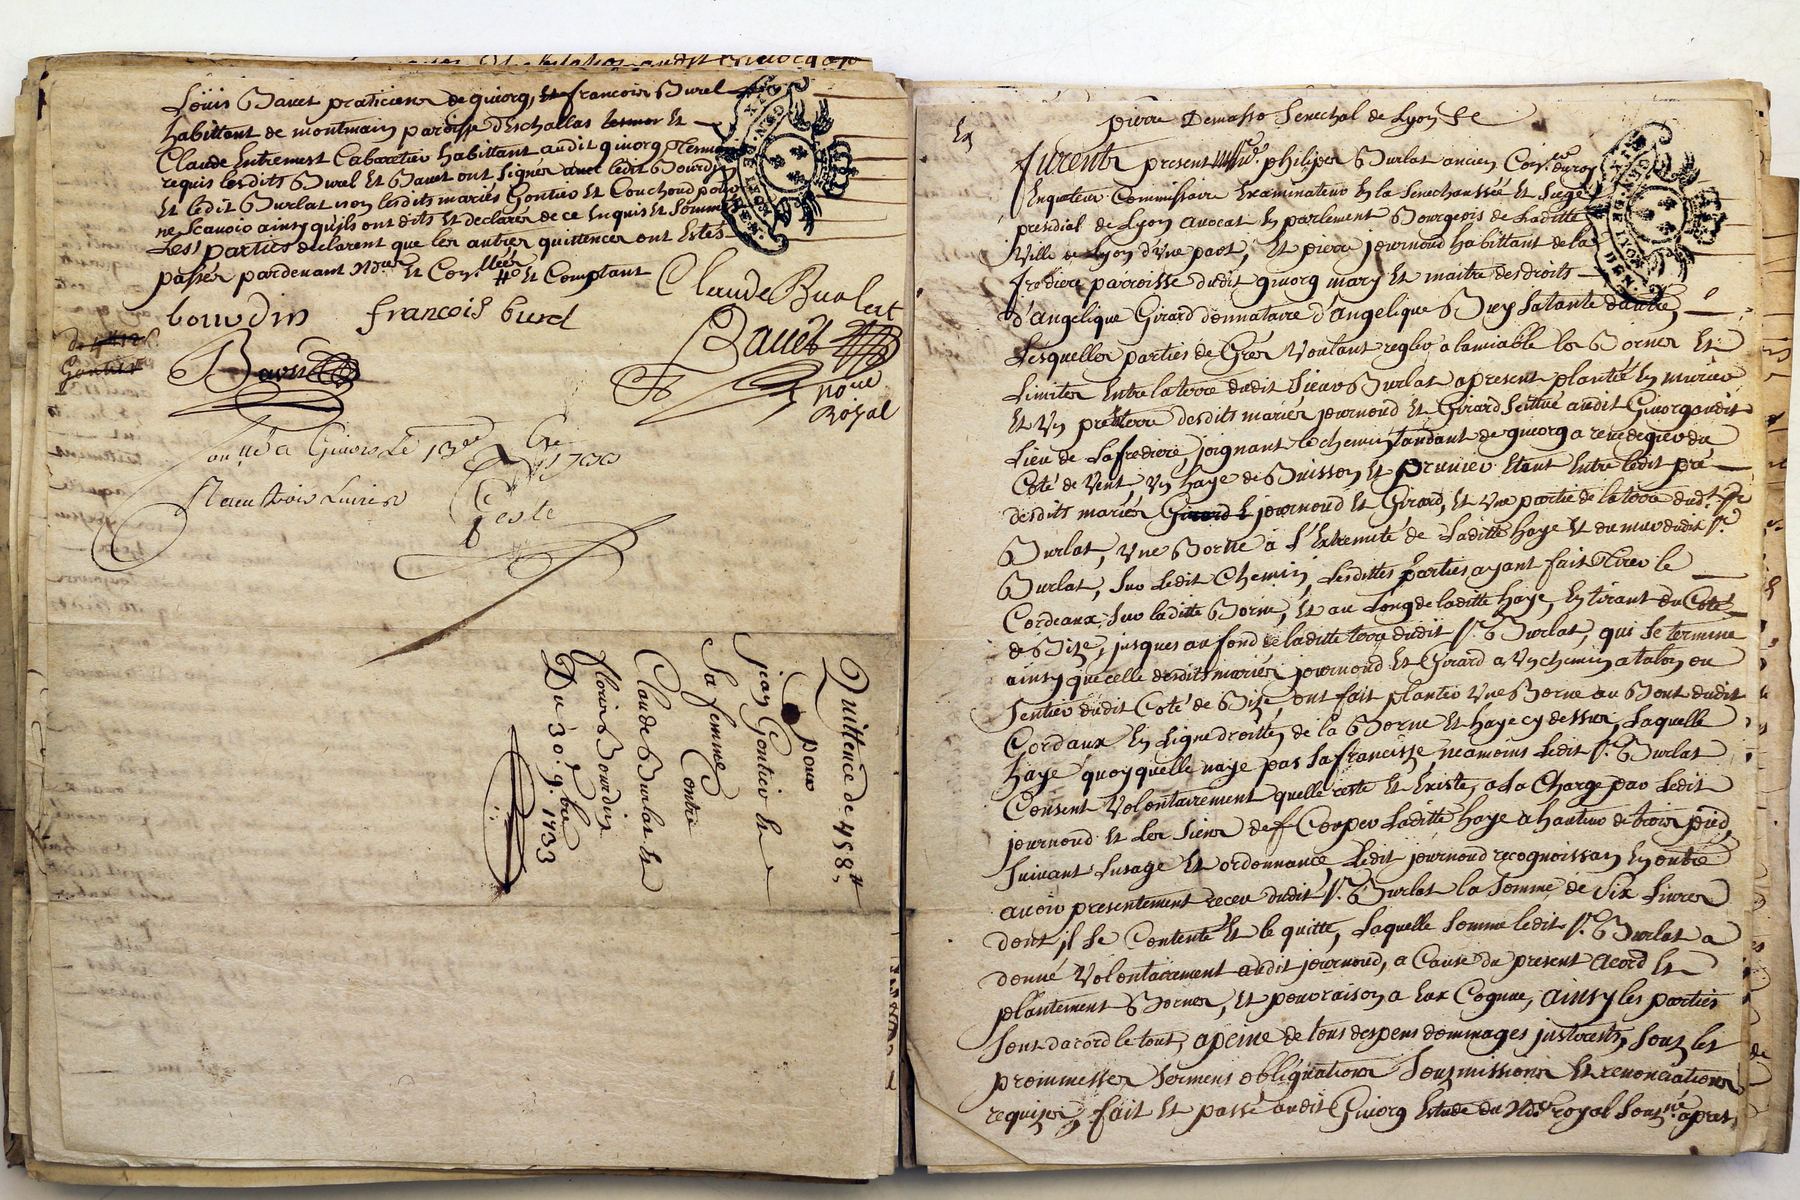 Loüis Bavet praticien de givorg, et francois Burel
habittant de montmain paroisse d'Eschallas et
Claude Entremest Cabaretier habittant audit givorg temoins
requis lesdits Burel et Bavet ont signés avec ledit Bourdin
et ledit Burlat non lesdits mariés Gontier et Couchoud pour
ne scavoir ainsy quils ont dits et declarés de ce enquis et sommés
Les parties declarent que les autres quittences ont estés
passés pardevant et comptant
Claude Burlat
bourdin
francois burel
Bavet
Bavet
no.re
Royal
Givors Le 13
1733
trois Livres
Geste
Quittence de 458
pour
jean Gontier et
Sa femme
Contre
Claude Burlat et
fleury Bourdin
Du 30. 9.bre 1733
pierre Demasso Senechal de Lyon
furents present philipes Burlat ancien Con.er du roy
Enqueteur Commissaire Examinateur En la Senechaussée Et Siege
presidial de Lyon avocat En parlement Bourgeois de Laditte
Ville de Lyon d'Vne part, Et pierre journoud habittant de la
frediere parroisse dudit givorg mary Et maitre des droits
d'angelique Girard donnataire d'angelique Bey Satante dautre,
Lesquelles parties de Grés Voulant regler a lamiable les Bornes Et
Limites Entre laterre dudit Sieur Burlat apresent plantée En murier
Et Vn pré Et terre desdits mariés journoud Et Girard Scitué audit Givorg audit
Lieu de Lafrediere joignant le chemin tandant de givorg a rivedegier du
Coté de Vent, Vn haye de Buisson Et prunier Etant Entre ledit pré
desdits mariés Girard journoud Et Girard, Et Vne partie de la terre dud. S.r
Burlat, Vne Borne a L'Extremité de Laditte haye Et du mur dudit S.r
Burlat, Sur Ledit Chemin, Lesdittes parties ayant fait tirer le
Cordeaux Sur laditte Borne, Et au Long de laditte haye, En tirant du Coté
de Bize, jusques au fond de laditte terre dudit S.r Burlat, qui Se termine
ainsy que celle desdits mariés journoud Et Girard a Vn chemin a talon ou
Sentier dudit Coté de Bize, ont fait planter Vne Borne au Bout dudit
Cordaux En Ligne droitte de la Borne Et haye cy dessus, Laquelle
haye quoy quelle naye pas Safrancisze, neamoins Ledit S.r Burlat
Consent Volontairement quelle reste Et Existe, a La Charge par Ledit
journoud Et Les Siens de Couper Laditte haye a hauteur de trois pied,
Suivant Lusage Et ordonnance, Ledit journoud recognoissan En outre
avoir presentement receu dudit S.r Burlat la Somme de Six Livres
dont il Se Contente Et le quitte, Laquelle Somme ledit S.r Burlat a
donné Volontairement audit journoud, a Cause du present acord Et
plantement Bornes, Et pour raison a Eux Cognue, ainsy les parties
Sont dacord le tout, a peine de tous despens dommages justerests, Sous les
prommesses Sermens obligations Sousmissions Et renonciations
requises, fait Et passé audit Givorg Estude du no.re royal Sous.né apres